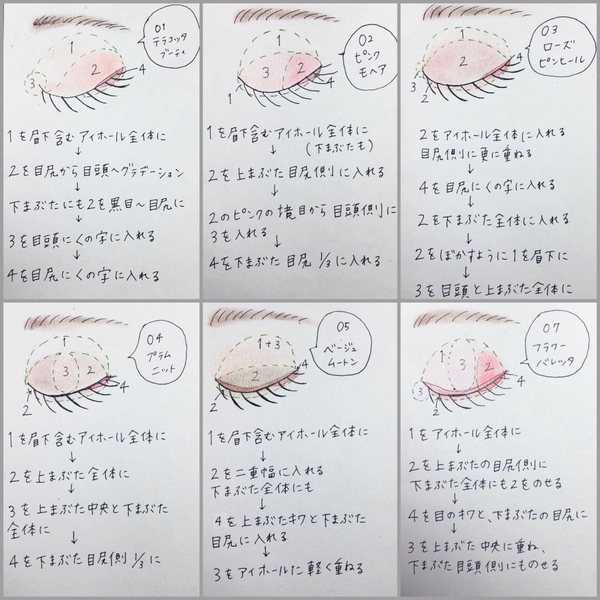 01
テラコッタ
ブーティ
1
2
3
4
1を眉下含むアイホール全体に
↓
2を目尻から目頭へグラデーション
↓
下まぶたにも2を黒目〜目尻に
↓
3を目頭にくの字に入れる
↓
4を目尻にくの字に入れる
02
ピンク
モヘア
1
3
2
4
1
1を眉下含むアイホール全体に
(下まぶたも)
↓
2を上まぶた目尻側に入れる
↓
2のピンクの境目から目頭側に
3を入れる
↓
4を下まぶた目尻1/3に入れる
03
ローズ
ピンヒール
1
2
4
3
2
2をアイホール全体に入れる
目尻側に更に重ねる
↓
4を目尻にくの字に入れる
↓
2を下まぶた全体に入れる
↓
2をぼかすように1を眉下に
↓
3を目頭と上まぶた全体に
04
プラム
ニット
1
3
2
4
2
1を眉下含むアイホール全体に
↓
2を上まぶた全体に
↓
3を上まぶた中央と下まぶた
全体に
↓
4を下まぶた目尻側1/3に
05
ベージュ
ムートン
1+3
2
4
2
1を眉下含むアイホール全体に
↓
2を二重幅に入れる
下まぶた全体にも
↓
4を上まぶたキワと下まぶた
目尻に入れる
↓
3をアイホールに軽く重ねる
07
フラワー
バレッタ
1
3
2
4
3
2
1をアイホール全体に
↓
2を上まぶたの目尻側に
下まぶた全体にも2をのせる
↓
4を目のキワと、下まぶたの目尻に
↓
3を上まぶた中央に重ね、
下まぶた目頭側にものせる